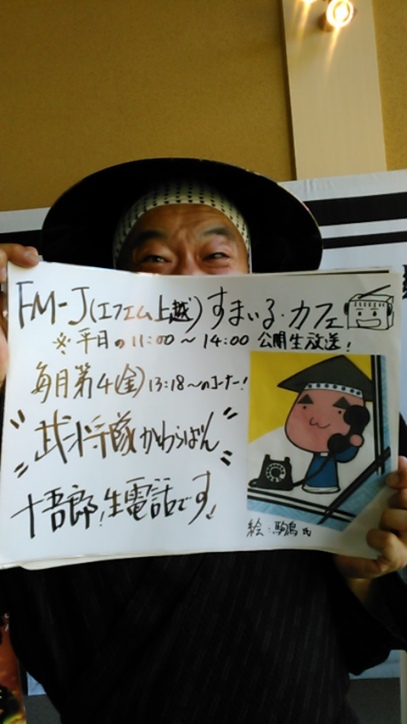 FM-J(エフエム上越)すまいる・カフェ
※平日の11:00〜14:00 公開生放送!
毎月第4(金)13:18〜のコーナー!
"武将隊かわらばん"
十吾郎!生電話です!
絵・駒鳥氏